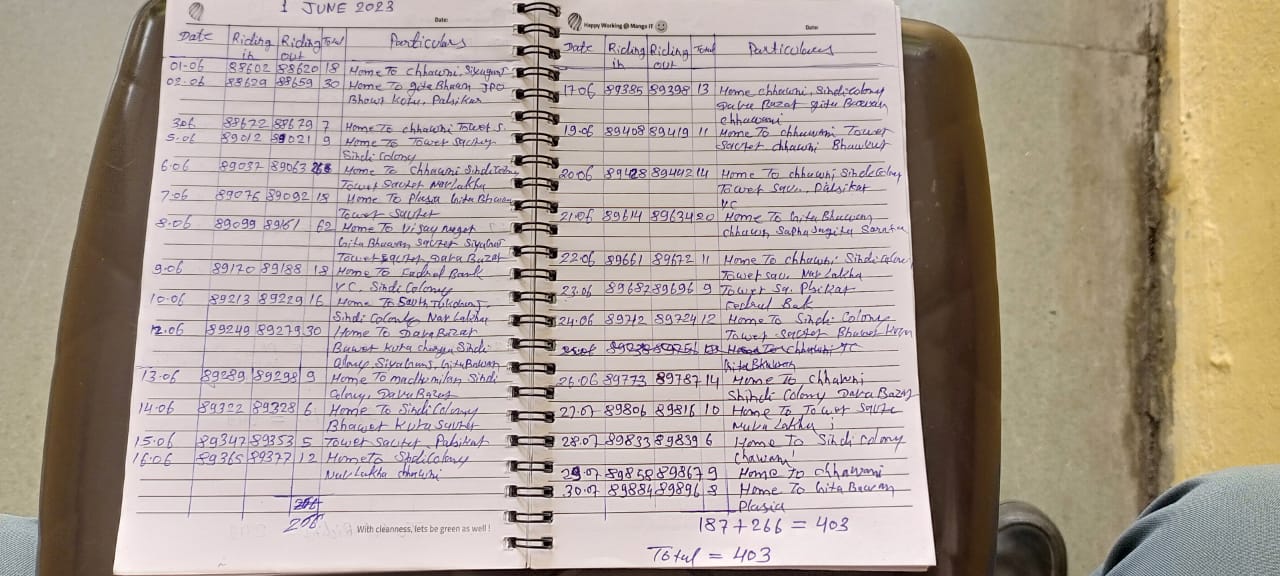 1 JUNE 2023
Date:
Date Riding in Riding out Total Particulars
01-06 88602 88620 18 Home To chhawni, Siyaganj
02-06 88629 88659 30 Home To gita Bhawan JPO
Bhawr Kota, Palsikar
3.06 88672 88679 7 Home To chhawni Tower S.
5-06 89012 89021 9 Home To Tower Sauter
Sindi Colony
6.06 89037 89063 26 Home To Chhawni Sindi Colony
Tower Sauter Nav Lakha
7.06 89076 89092 18 Home To Plasia Gita Bhawan
Tower Sauter
8.06 89099 89161 62 Home To Vijay Nager
Gita Bhawan Sauter Siyaganj
Tower Sauter, Dava Bazar
9.06 89170 89188 18 Home To Fadral Bank
Y.C. Sindi Colony
10.06 89213 89229 16 Home To South Tukoganj
Sindi Colony Nav Lakha
12.06 89249 89279 30 Home To Dava Bazar
Bawer Kuta Sindi
Colony, Siyaganj, Gita Bawan
13.06 89289 89298 9 Home To madhumilan Sindi
Colony, Dava Bazar
14.06 89322 89328 6 Home To Sindi Colony
Bhawer Kuta Sauter
15.06 89347 89353 5 Tower Sauter, Palsikar
16.06 89365 89377 12 Home To Sindi Colony
Nav Lakha chhawni
266
With cleanness, lets be green as well !
Happy Working @ Mango IT
Date:
Date Riding in Riding out Total Particulars
17.06 89385 89398 13 Home chhawni, Sindi colony
Dava Bazar Gita Bawan
chhawani
19.06 89408 89419 11 Home To chhawni Tower
Sauter chhawni Bhawkut
20.06 89428 89442 14 Home To chhawni Sindi Colony
Tower Sau. Palsikar
Y.C
21.06 89614 89634 20 Home To Gita Bhawan
chhawni Sapna Sagita
22.06 89661 89672 11 Home To chhawni Sindi Colony
Tower Sau. Nav Lakha
23.06 89682 89696 9 Tower Sq. Plsikar
Fedrul Bak
24.06 89712 89724 12 Home To Sindi Colony
Tower Sauter Bhawer Kuan
Home To Chhawni, YC
Gita Bhawan
26.06 89773 89787 14 Home To Chhawni
Shindi Colony Dava Bazar
27.07 89806 89816 10 Home To Tower Saute
Nava Lakha
28.07 89833 89839 6 Home To Sindi Colony
Chawani
29.07 89858 89867 9 Home To chhawani
30.07 89884 89896 8 Home To Gita Bawan
Plasia
187 + 266 = 403
Total = 403